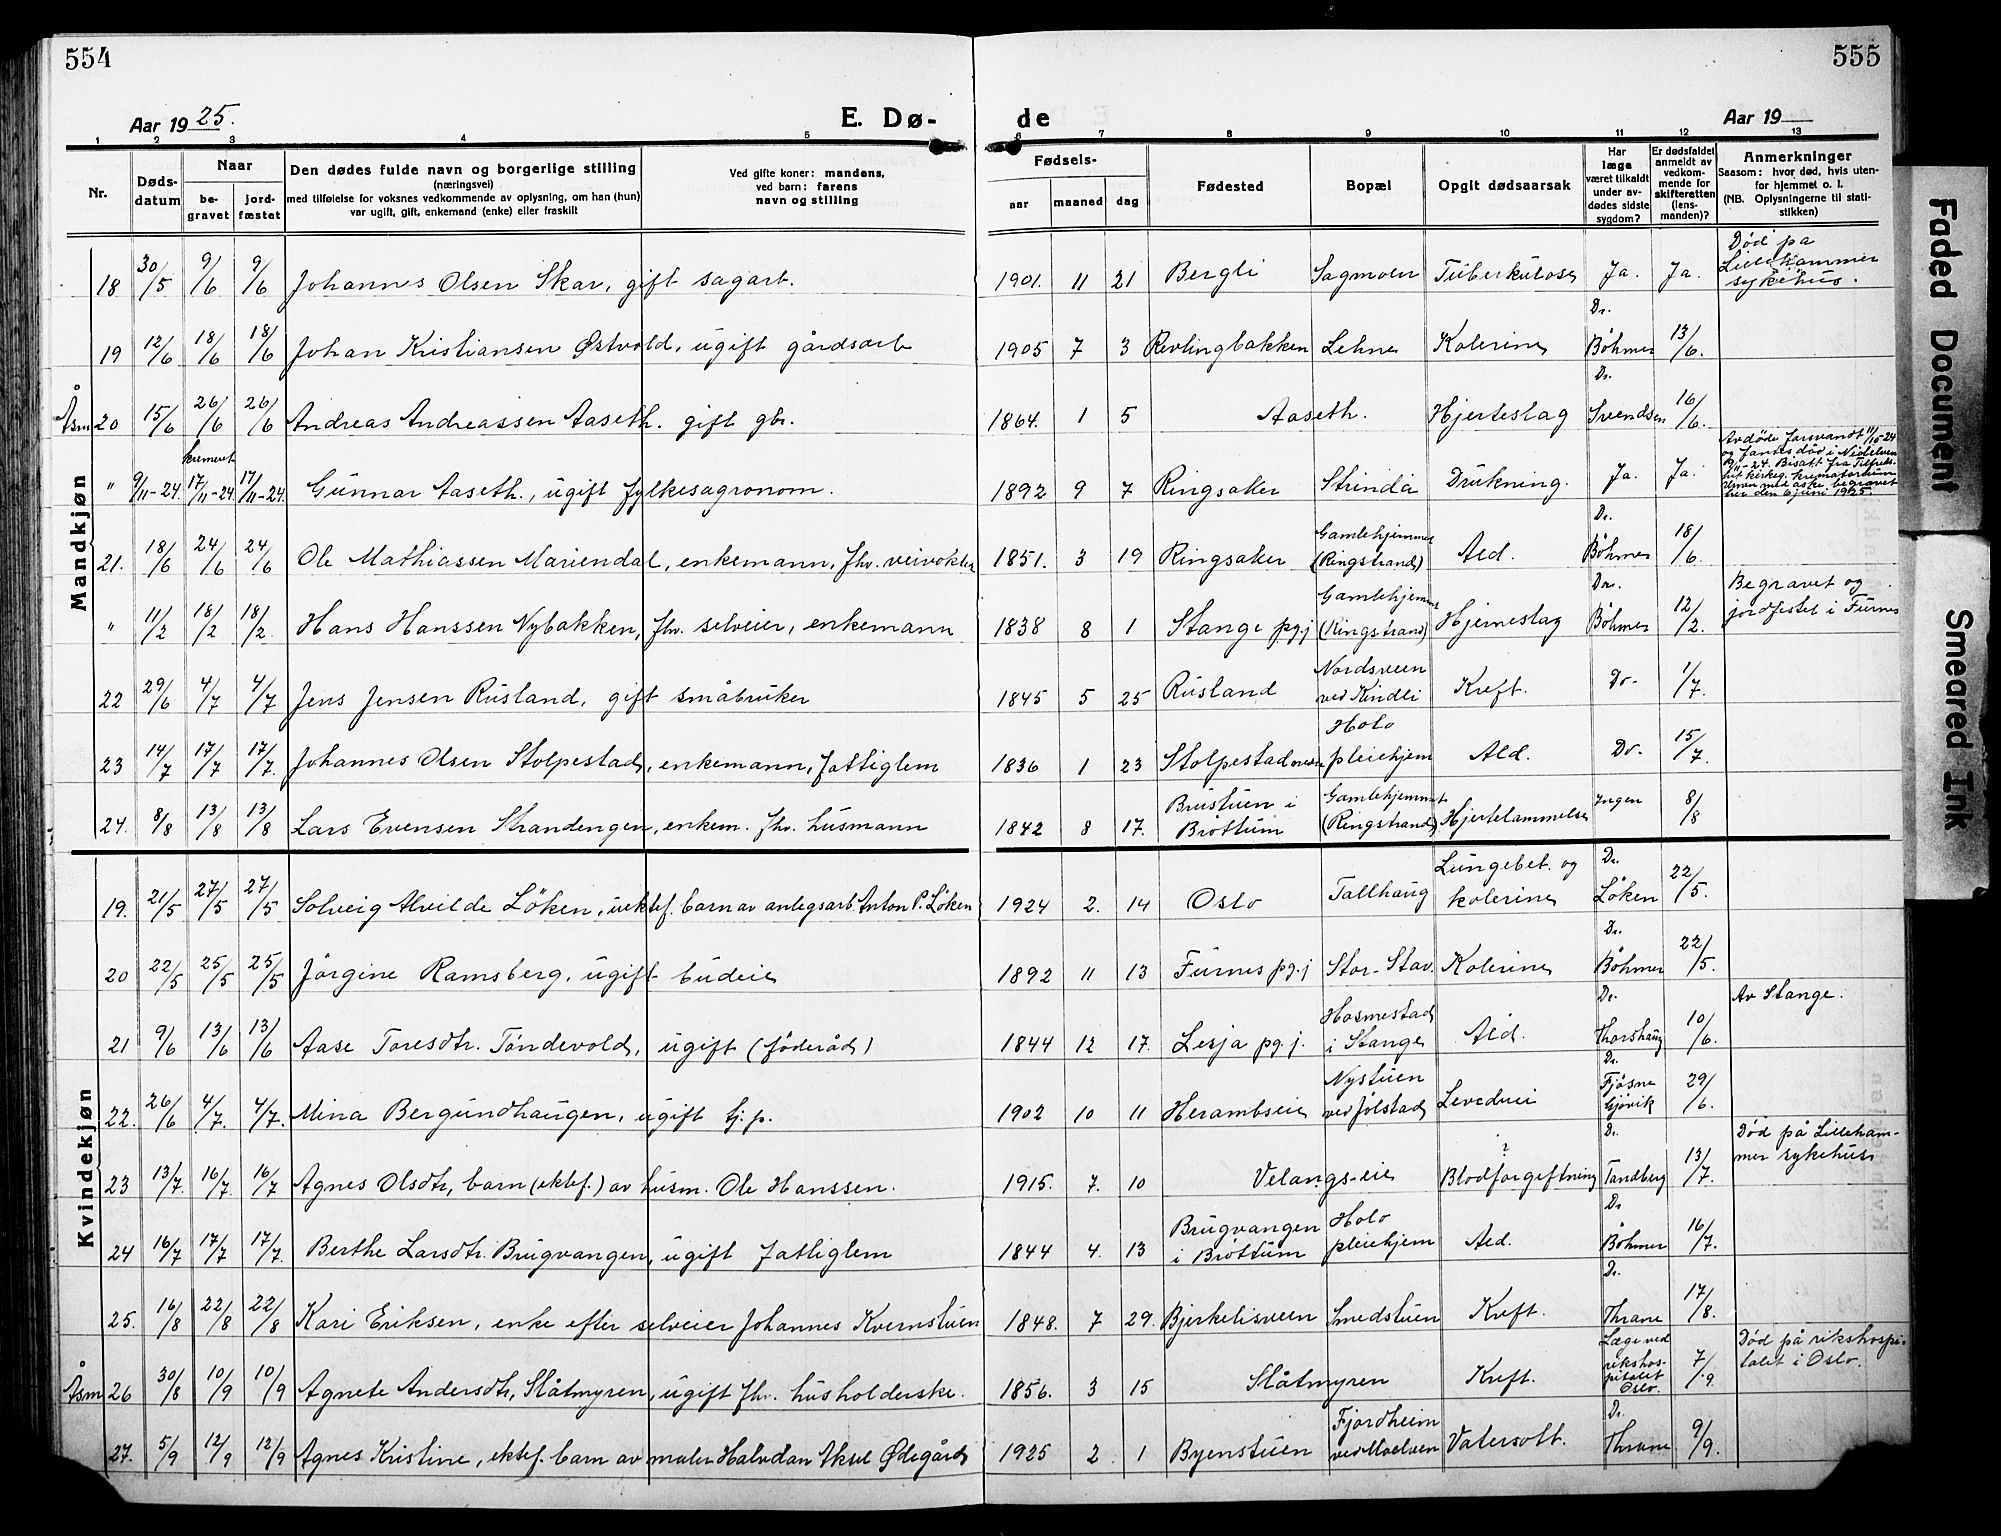 554
555
Aar 1925.
E. Dø-
de
Aar 19
1 2 3 4 5 6 7 8 9 10 11 12 13
Nr.
Døds-
datum
Naar
be-
gravet
jord-
fæstet
Den dødes fulde navn og borgerlige stilling
(næringsvei)
med tilføielse for voksnes vedkommende av oplysning, om han (hun)
var ugift, gift, enkemand (enke) eller fraskilt
Ved gifte koner: mandens,
ved barn: farens
navn og stilling
Fødsels-
aar maaned dag
Fødested
Bopæl
Opgit dødsaarsak
Har
læge
været tilkaldt
under av-
dødes sidste
sygdom?
Er dødsfaldet
anmeldt av
vedkom-
mende for
skifteretten
(lens-
manden)?
Anmerkninger
Saasom: hvor død, hvis uten-
for hjemmet o. l.
(NB. Oplysningerne til stati-
stikken)
Mandkjøn
18 30/5 9/6 9/6 Johannes Olsen Skar, gift sagarb. 1901. 11 21 Bergli Sagmoen Tuberkulose Ja. Ja. Død på
Lillehammer
sykehus.
19 12/6 18/6 18/6 Johan Kristiansen Østvold, ugift gårdsarb 1905 7 3 Revlingbakken Lehne Kolerine Dr.
Böhmer 13/6.
Åsm 20 15/6 26/6 26/6 Andreas Andreassen Aaseth. gift gbr. 1864. 1 5 Aaseth. Hjerteslag Dr.
Svendsen 16/6.
" 9/11-24. kremert
17/11-24. 17/11-24. Gunnar Aaseth., ugift fylkesagronom. 1892 9 7 Ringsaker Strinda Drukning. Ja. Ja. Avdøde forsvandt 11/10-24
og fantes død i Nidelven
9/11-24. Bisatt fra
kirkeg. krematorium
Urnen med aske begravet
her den 6 juni 1925.
21. 18/6 24/6 24/6 Ole Mathiassen Mariendal, enkemann, fhv. veivokter 1851. 3 19 Ringsaker Gamlehjemmet
(Ringstrand) Ald. Dr.
Böhmer 18/6.
" 11/2 18/2 18/2. Hans Hanssen Nybakken, fhv. selveier, enkemann 1838 8 1 Stange pg.j Gamlehjemmet
(Ringstrand) Hjerneslag Dr.
Böhmer 12/2. Begravet og
jordfestet i Furnes
22 29/6 4/7 4/7 Jens Jensen Rusland, gift småbruker 1845 5 25 Rusland Nordsveen
ved Kindli Kreft. Do- 1/7.
23 14/7 17/7 17/7. Johannes Olsen Stolpestad, enkemann, fattiglem 1836 1 23 Stolpestad Holo
pleiehjem Ald. Do- 15/7.
24. 8/8 13/8 13/8 Lars Evensen Strandengen, enkem. fhv. husmann 1842 8 17. Brustuen i
Brøttum Gamlehjemmet
(Ringstrand) Hjertelammelse Ingen 8/8
Kvindekjøn
19. 21/5 27/5 27/5 Solveig Alvilde Löken, uektef. barn av anlegsarb. Anton P. Löken 1924 2. 14 Oslo Tallhaug Lungebet. og
kolerine Dr.
Löken 22/5.
20 22/5 25/5 25/5 Jörgine Ramsberg, ugift budeie 1892 11 13 Furnes pg.j Stor-Stav. Kolerine Dr.
Böhmer 22/5.
21 9/6 13/6 13/6 Aase Toresdtr. Töndevold, ugift (föderåd) 1844 12 17. Lesja pg.j. Hosmestad
i Stange Ald. Dr.
Thorshaug 10/6. Av Stange.
22. 26/6 4/7. 4/7. Mina Bergundhaugen, ugift tj.p. 1902 10 11 Herambseie Nystuen
ved Jølstad Levedvei Dr.
Fjösne
Gjövik 29/6.
23 13/7. 16/7. 16/7 Agnes Olsdtr, barn (ektef.) av husm. Ole Hanssen. 1915. 7. 10 Velangs-eie ?
Blodforgiftning Dr.
Tandberg 13/7. Død på Lilleham-
mer sykehus
24 16/7 17/7 17/7. Berthe Larsdtr. Brugvangen, ugift fattiglem 1844 4. 13 Brugvangen
i Brøttum Holo
pleiehjem Ald. Dr
Böhmer 16/7.
25. 16/8 22/8 22/8 Kari Eriksen, enke efter selveier Johannes Kvernstuen 1848. 7 29. Bjerkelisveen Smedstuen Kreft. Dr.
Thrane 17/8.
Åsm 26 30/8 10/9 10/9 Agnete Andersdtr, Slåtmyren, ugift fhv. husholderske. 1856. 3 15 Slåtmyren Kreft. Læge ved
rikshos-
pitalet
Oslo. 7/9. Død på rikshospi-
talet i Oslo.
27. 5/9 12/9 12/9 Agnes Kristine, ektef. barn av maler Halvdan Aksel Ødegård 1925 2 1 Byenstuen Fjordheim
ved Moelven Vatersott. Dr.
Thrane 9/9.
Faded Document
Smeared Ink